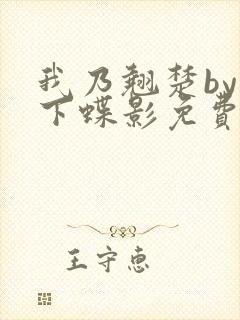 我乃翘楚by
下蝶影免費
王守惠